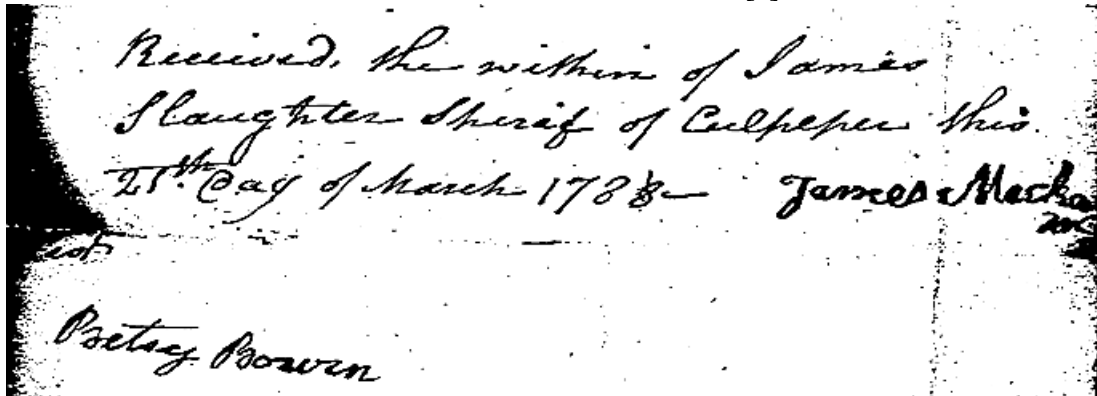 Received, the within of James
Slaughter Sheraif of Culpeper this
21th Day of March 1788 James Macka
Betsy Bowen